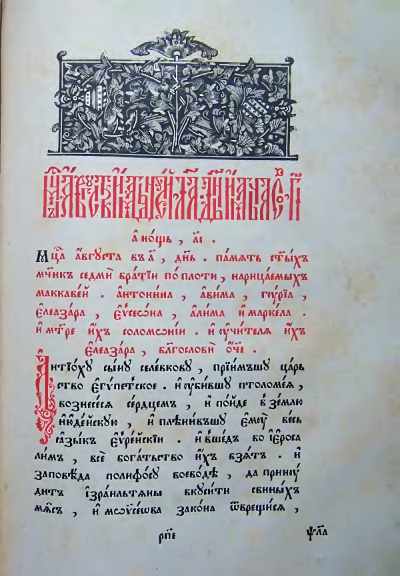 а҆ нощь , а҃і .
Мц҃а а҆́вгуста въ а҃ , дн҃ь . па́мѧть ст҃ы́хъ
мч҃никъ седмѝ бра́тїи по пло́ти , нарица́емыхъ
маккаве́й . а҆нтони́на , а҆ви́ма , гꙋ́рїѧ ,
є҆леаза́ра , є҆ѵсево́на , а҆ли́ма и҆ марке́ла .
и҆ мт҃ре и҆́хъ соломонїи . и҆ ᲂу҆чи́телѧ и҆́хъ
є҆леаза́ра , бл҃гословѝ ѻ҆́ч҃е .
Антїо́хꙋ сы́нꙋ селе́вковꙋ , прїи́мшꙋ ца́рь
ство є҆гѵ́петское . и҆ ᲂу҆би́вшꙋ птоломе́ѧ ,
вознесе́сѧ се́рдцемъ , и҆ по́йде в зе́млю
и҆ꙋде́йскꙋю , и҆ плѣни́вшꙋ є҆мꙋ̀ ве́сь
ꙗ҆зы́къ є҆вре́йскїи . и҆ вше́дъ во і҆еросⷭ҇а
ли́мъ , всѐ бога́тство и҆́хъ взѧ́тъ . и҆
заповѣ́да полифо́сꙋ воево́дѣ , да принꙋ́
дитъ і҆зра́ильтѧны вкꙋси́ти свины́хъ
мѧ́съ , и҆ мѡѷсе́ѡва зако́на ѿврещи́сѧ ,
рп҃е